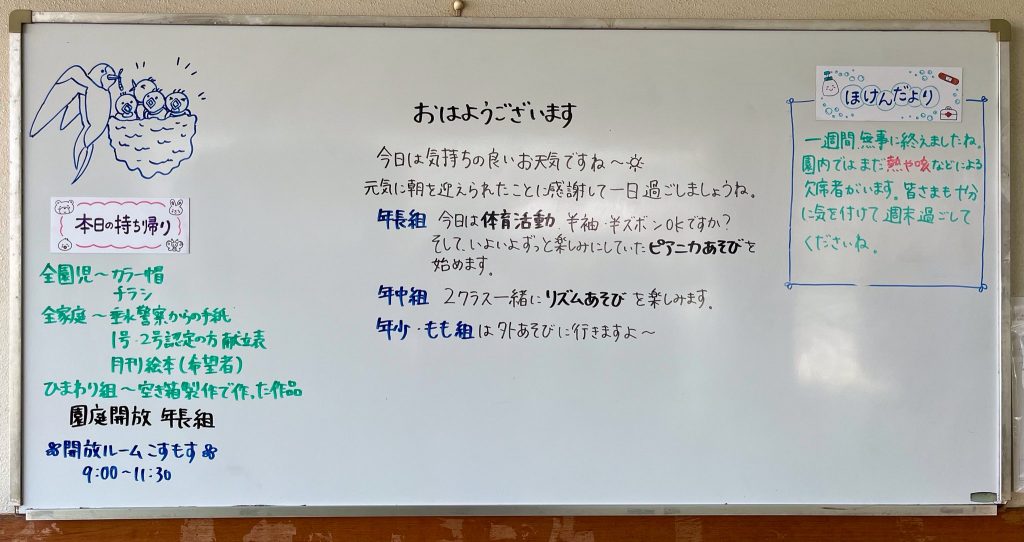 おはようございます
今日は気持ちの良いお天気ですね〜☼
元気に朝を迎えられたことに感謝して一日過ごしましょうね。
年長組 今日は体育活動 半袖・半ズボンOKですか?
そして、いよいよずっと楽しみにしていたピアニカあそびを
始めます。
年中組 2クラス一緒にリズムあそびを楽しみます。
年少・もも組は外あそびに行きますよ〜
本日の持ち帰り
全園児〜カラー帽
チラシ
全家庭〜垂水警察からの手紙
1号・2号認定の方献立表
月刊絵本(希望者)
ひまわり組〜空き箱製作で作った作品
園庭開放 年長組
開放ルームこすもす
9:00〜11:30
ほけんだより
一週間無事に終えましたね。
園内ではまだ熱や咳などによる
欠席者がいます。皆さまも十分
に気を付けて週末過ごして
くださいね。